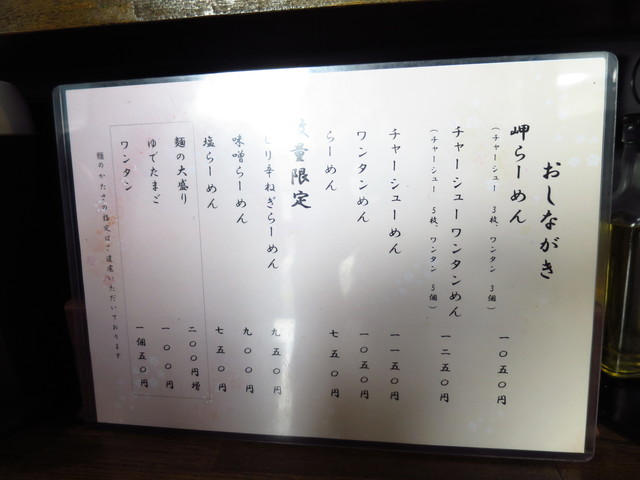 おしながき
岬らーめん 一〇五〇円
(チャーシュー 3枚、ワンタン 3個)
チャーシューワンタンめん 一二五〇円
(チャーシュー 5枚、ワンタン 5個)
チャーシューめん 一一五〇円
ワンタンめん 一〇五〇円
らーめん 七五〇円
量限定
辛ねぎらーめん 九五〇円
味噌らーめん 九〇〇円
塩らーめん 七五〇円
麺の大盛り 二〇〇円増
ゆでたまご 一〇〇円
ワンタン 一個五〇円
麺のかたさの指定はご遠慮いただいております